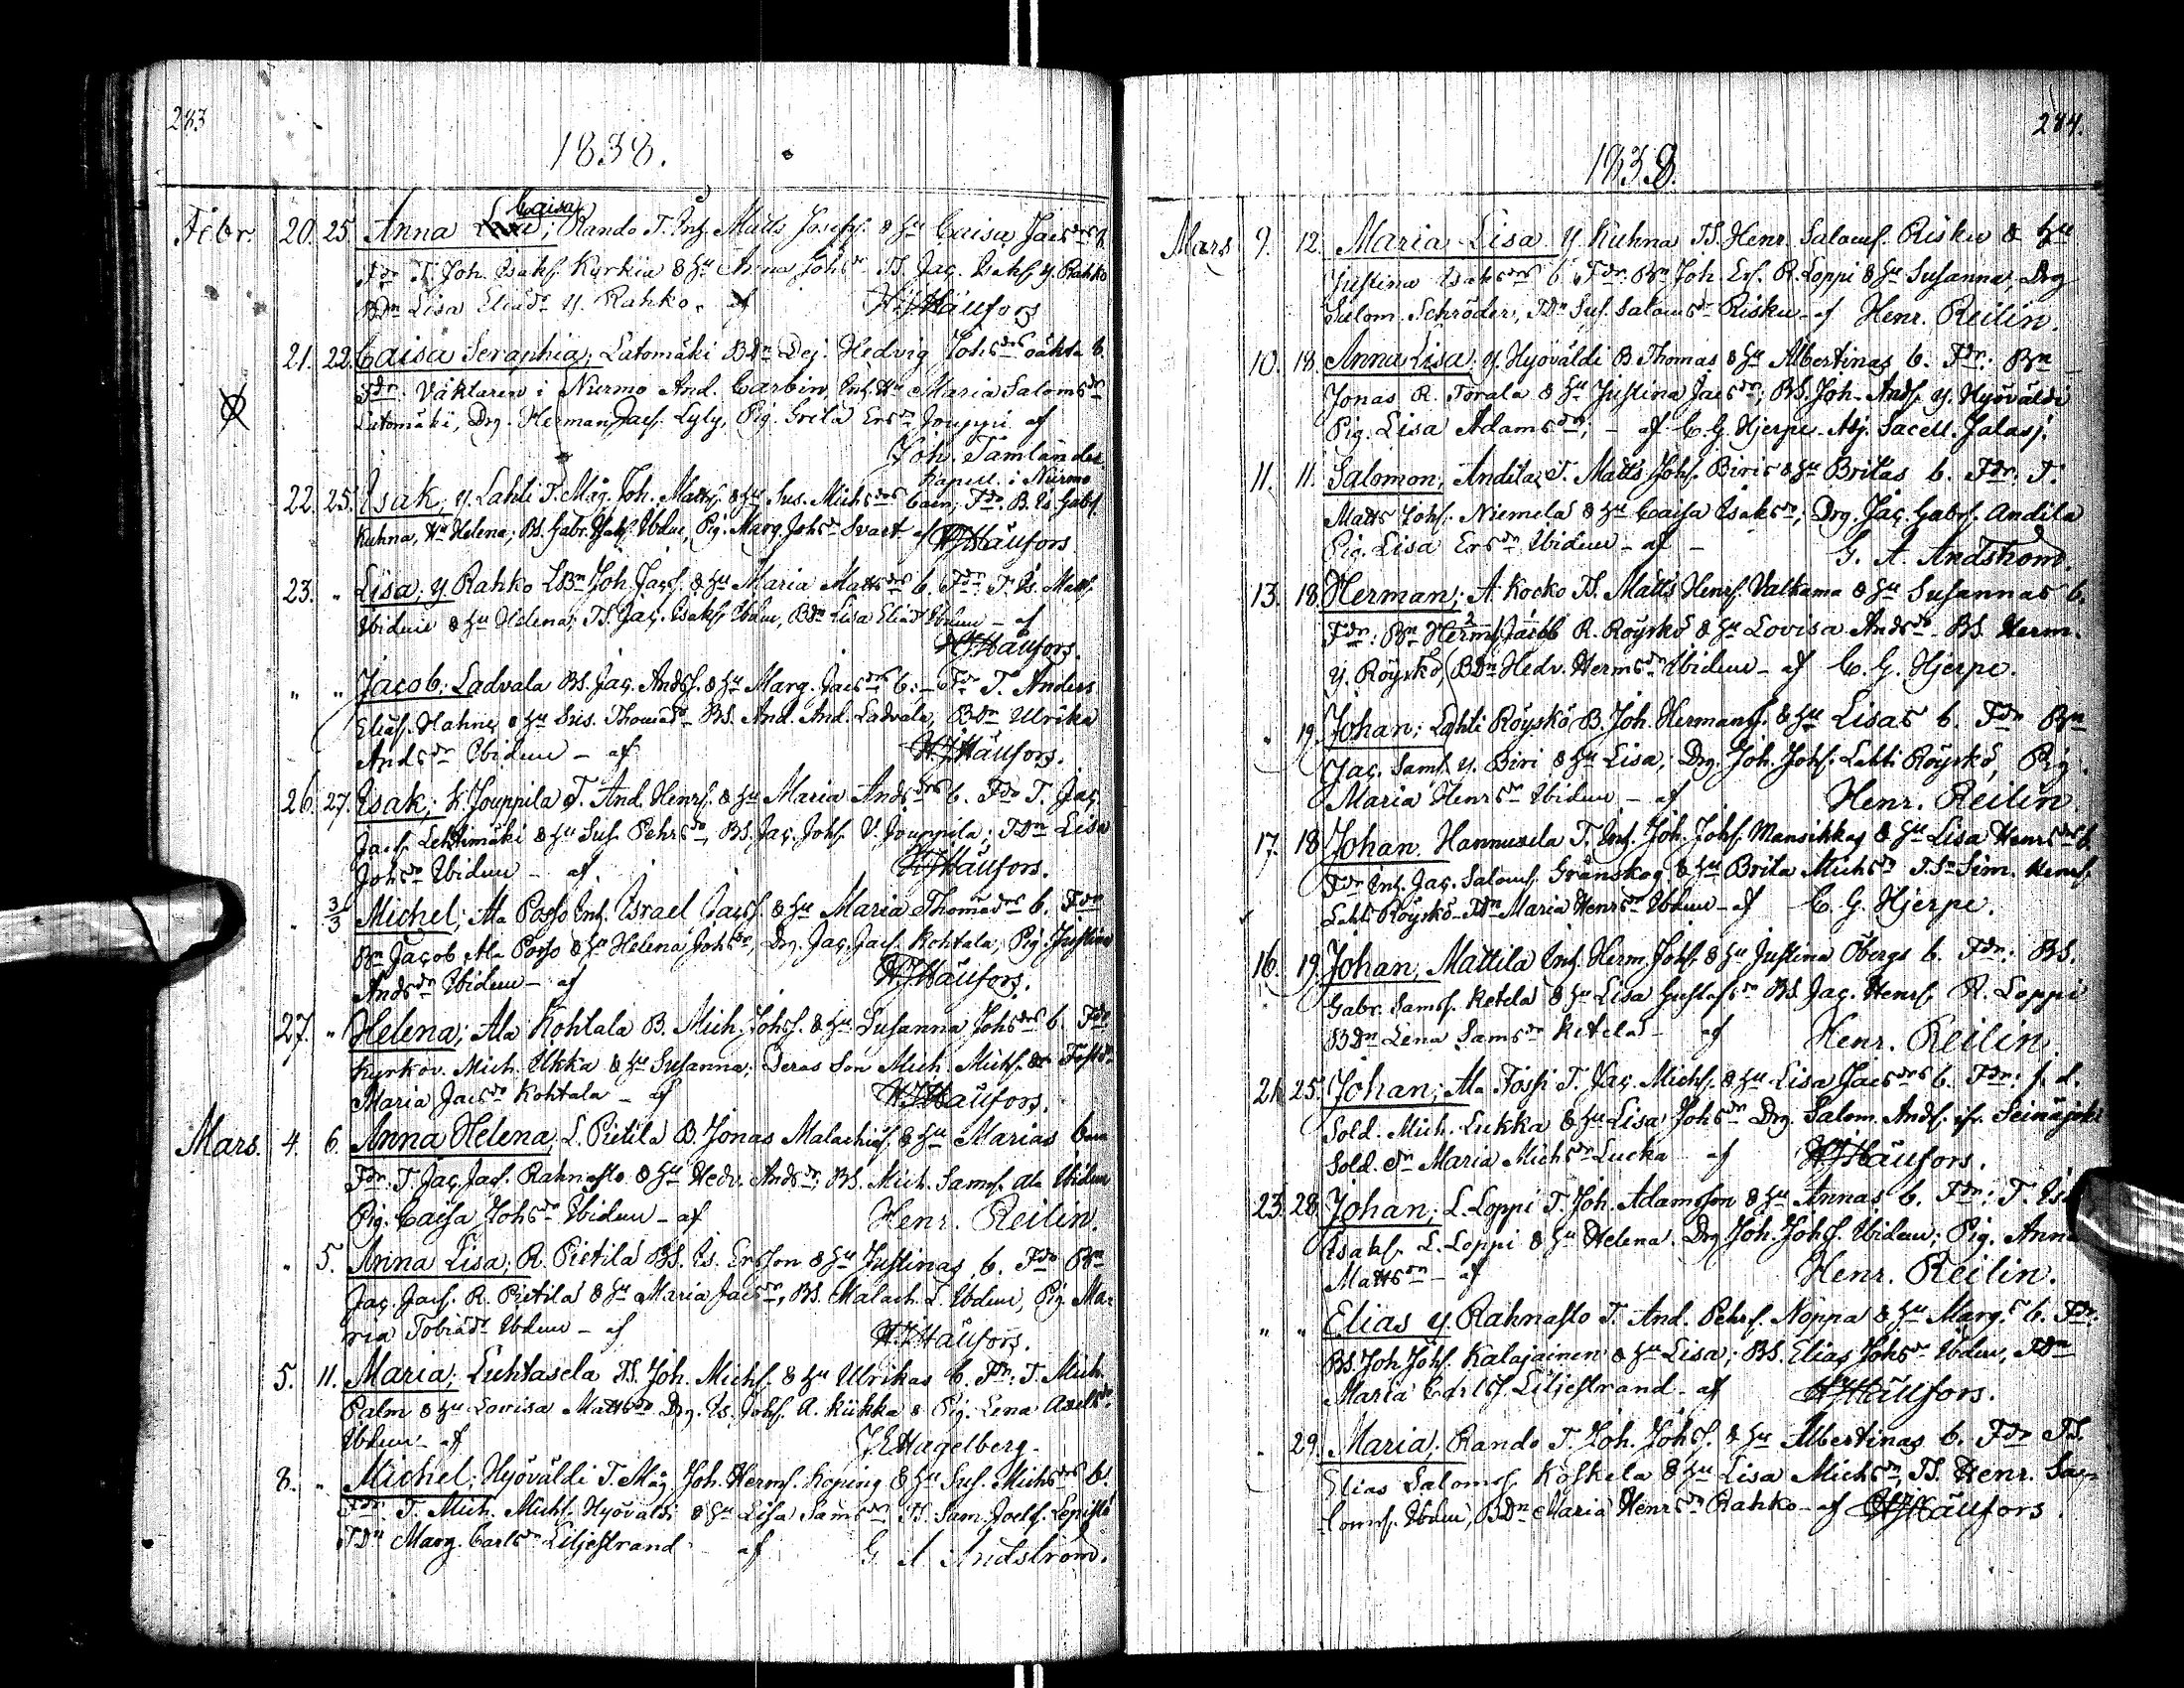 283
1838.
Febr. 20. 25. Anna Caisa; Rando T. Inh. Matts Josephs. & Hu Caisa Jacsdrs b.
Fdr T. Joh. Isaks. Kyrkiu & Hu Anna Johsdr TS. Jac. Isaks. Y. Rahko
BDr Lisa Eliædr Y. Rahko. af H. J. Häufors
21. 22. Caisa Seraphia; Latomäki BDr Dej. Hedvig Johsdrs oäkta b.
Fdr.Väktaren i Nurmo And. Carbin, Inh. Hu Maria Salomsdr
Latomäki, Drg. Herman Jacs. Lyly, Pig. Greta Ersdr Jouppi af
Joh. Tamlander
Kapell. i Nurmo
22. 25. Isak; Y. Lahti T. Måg. Joh. Matts. & Hu Sus. Michsdrs barn; Fdr. B. Is. Gabs.
Kuhna, Hu Helena; BS. Gabr. Isaks. Ibdm, Pig. Marg. Johsdr Svart af H. J. Häufors
23. " Lisa; Y. Rahko LBn Joh. Jacs. & Hu Maria Mattsdrs b. Fdr T. Is. Matts.
Ibidem & Hu Helena; TS. Jac. Isaks. Ibdm, BDr Lisa Eliædr Ibdm – af
H. J. Häufors.
" " Jacob; Ladvala BS. Jac. Ands. & Hu Marg. Jacsdrs b. – Fdr T. Anders
Elias. Hahne, & Hu Sus. Thomædr BS. And. And. Ladvala, BDr Ulrika
Andsdr Ibidem – af H. J. Häufors.
26. 27. Isak; K. Jouppila T. And. Henrs. & Hu Maria Andsdrs b. Fdr T. Jac.
Jacs. Lehtimäki & Hu Sus. Pehrsdr, BS. Jac. Johs. Y. Jouppila; TDr Lisa
Johsdr Ibidem – af. H. J. Häufors.
" 3/3 Michel; Ala Posso Inh. Israel Jacs. & Hu Maria Thomædrs b. Fdr
Bn Jacob Ala Posso & Hu Helena Johsdr, Drg. Jac. Jacs. Kohtala, Pig. Justina
Andsdr Ibidem – af H. J. Häufors.
27. " Helena; Ala Kohtala B. Mich. Johs. & Hu Susanna Johsdrs b. Fdr
Kyrkov. Mich. Ukka & Hu Susanna; Deras Son Mich. Michs. & Fostdr
Maria Jacsdr Kohtala – af H. J. Häufors.
Mars. 4. 6. Anna Helena; L. Pietila B. Jonas Malachias. & Hu Marias barn
Fdr. T. Jac. Jacs. Rahnasto & Hu Hedv. Andsdr; BS. Mich. Sams. Ala Ibidem
Pig. Caisa Johsdr Ibidem – af Henr. Reilin.
" 5. Anna Lisa; R. Pietila BS. Is. Ersson & Hu Justinas b. Fdr Bn
Jac. Jacs. R. Pietila & Hu Maria Jacsdr, BS. Malach. L. Ibdem, Pig. Ma-
ria Tobiædr Ibdem – af H. J. Häufors.
5. 11. Maria; Luhtasela TS. Joh. Michs. & Hu Ulrikas b. Fdr: T. Mich.
Palm & Hu Lovisa Mattsdr Drg. Is. Johs. A. Kiikka & Pig. Lena Axelsdr
Ibdem – af J. E. Hagelberg.
8. " Michel; Hyöväldi T. Måg. Joh. Herms. Koping & Hu Sus. Michsdrs b.
Fdr. T. Mich. Michs. Hyövaldi & Hu Lisa Samsdr TS. Sam. Joels. Lepistö
TDr Marg. Carlsdr Liljestrand – af G. A. Andström.
284.
1838.
Mars 9. 12. Maria Lisa Y. Kuhna TS. Henr. Saloms. Risku & Hu
Justina Isaksdrs b. Fdr: Bn Joh. Ers. R. Loppi & Hu Susanna, Drg
Salom. Schröder, TDr Sus. Salomsdr Risku – af Henr. Reilin.
10. 18. Anna Lisa; Y. Hyöväldi B. Thomas & Hu Albertinas b. Fdr: Bn
Jonas R. Torala & Hu Justina Jacsdr; BS. Joh. Ands. Y. Hyöväldi
Pig. Lisa Adamsdr; – af C. G. Hjerpe. Adj. Sacell. Jalasj.
11. 11. Salomon; Andila, T. Matts Johs. Biris & Hu Britas b. Fdr: T.
Matts Johs. Niemelä & Hu Caisa Isaksdr; Drg. Jac. Gabrs. Andila
Pig. Lisa Ersdr Ibidem – af – G. A. Andström.
13. 18. Herman; A. Kocko TS. Matts Henrs. Valkama & Hu Susannas b.
Fdr: Bn Herms. Jacob R. Röyskö & Hu Lovisa Andsdr. BS. Herm.
Y. Röyskö, BDr Hedv. Hermsdr Ibidem – af C. G. Hjerpe.
" 19. Johan; Lahti Röyskö B. Joh. Hermans. & Hu Lisas b. Fdr Bn
Jac. Sams. Y. Biri & Hu Lisa; Drg. Joh. Johs. Lahti Röyskö, Pig.
Maria Henrsdr Ibidem – af Henr. Reilin
17. 18 Johan. Hannuxela T. Inh. Joh. Johs. Mansikkas & Hu Lisa Henrsdrs b.
Fdr Inh. Jac. Saloms. Grånskog & Hu Brita Michsdr T. Sn Sim. Henrs.
Lahti Röyskö. TDr Maria Henrsdr Ibdem – af C. G. Hjerpe.
16. 19. Johan; Mattila Inh. Herm. Johs. & Hu Justina Öbergs b. Fdr: BS.
Gabr. Sams. Ketela & Hu Lisa Gustafsdr BS. Jac. Henrs. R. Loppi
BDr Lena Samsdr Ketela – af Henr. Reilin.
21. 25. Johan; Ala Fossi T. Jac. Michs. & Hu Lisa Jacsdrs b. Fdr: f. d.
Sold. Mich. Lukka & Hu Lisa Johsdr Drg. Salom. Ands. ifr. Seinäjoki
Sold. dr Maria Michsdr Lucka af H. J. Häufors.
23. 28. Johan; L. Loppi T. Joh. Adamsson & Hu Annas b. Fdr: T. Is
Isaks. L. Loppi & Hu Helena. Drg Joh. Johs. Ibidem; Pig. Anna
Mattsdr – af Henr. Reilin.
" " Elias Y. Rahnasto T. And. Pehrs. Noppa & Hu Margs b. Fdr.
BS. Joh. Johs. Kalajainen & Hu Lisa; BS. Elias Johs. Ibdem, TDr
Maria Carls. Liljestrand – af H. J. Häufors.
" 29. Maria; Rando T. Joh. Johs. & Hu Albertinas b. Fdr TS.
Elias Saloms. Koskela & Hu Lisa Michsdr, TS. Henr. Sa-
loms. Ibdem, BDr Maria Henrsdr Rahko – af H. J. Häufors.